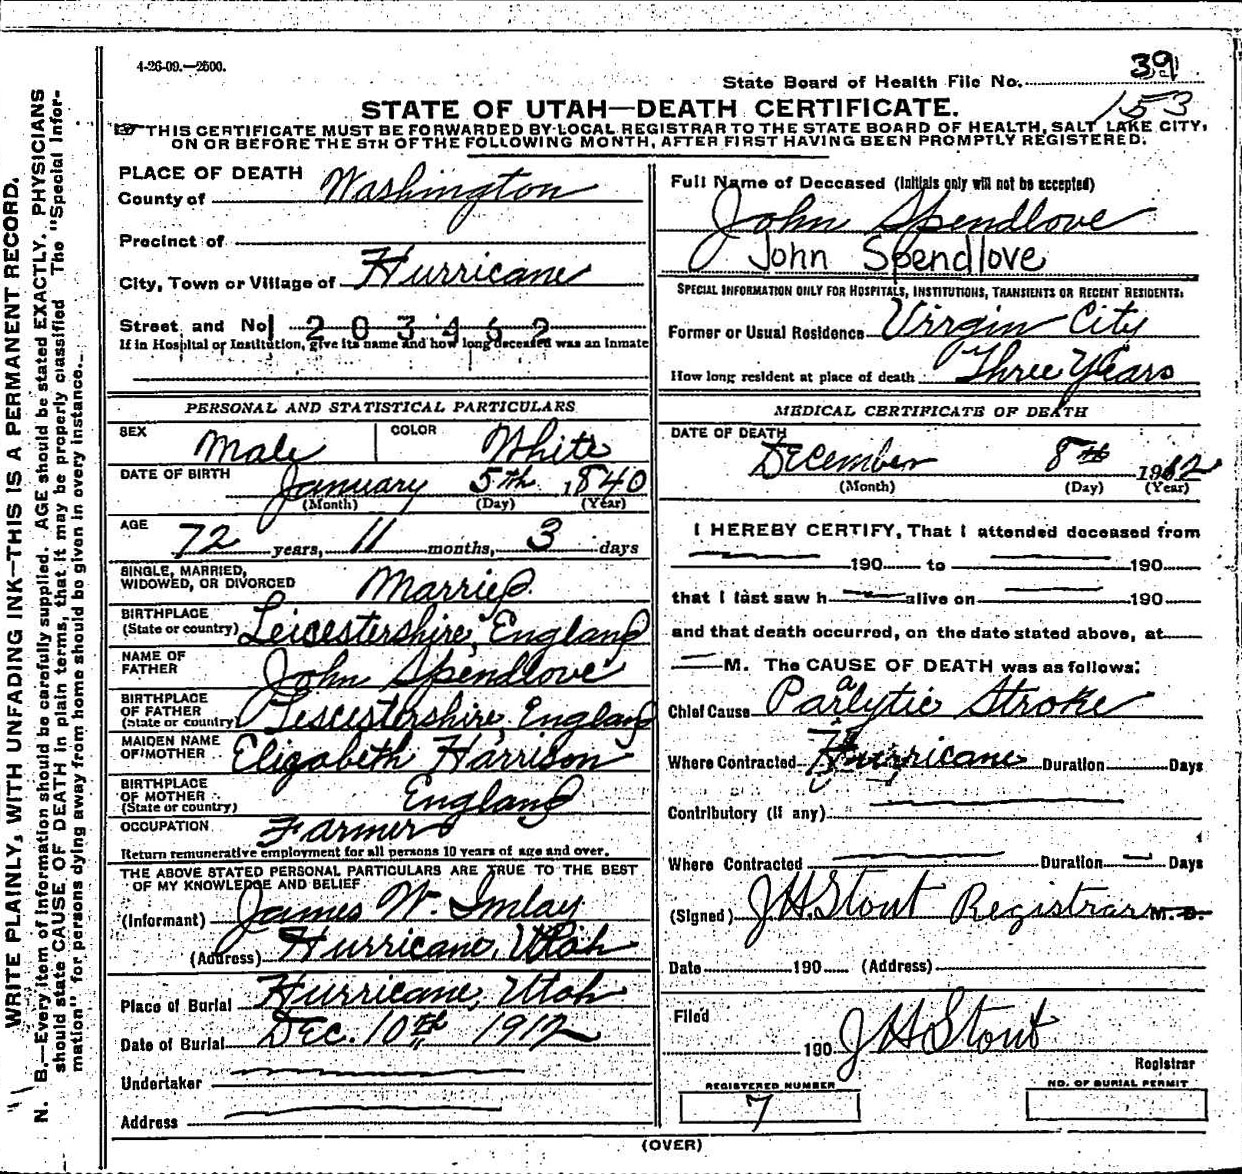 4-26-09.—2500.
State Board of Health File No. 39
153
STATE OF UTAH—DEATH CERTIFICATE.
THIS CERTIFICATE MUST BE FORWARDED BY LOCAL REGISTRAR TO THE STATE BOARD OF HEALTH, SALT LAKE CITY,
ON OR BEFORE THE 5TH OF THE FOLLOWING MONTH, AFTER FIRST HAVING BEEN PROMPTLY REGISTERED.
WRITE PLAINLY, WITH UNFADING INK—THIS IS A PERMANENT RECORD.
N. B.—Every item of information should be carefully supplied. AGE should be stated EXACTLY. PHYSICIANS
should state CAUSE OF DEATH in plain terms, that it may be properly classified The "Special Infor-
mation" for persons dying away from home should be given in every instance.
PLACE OF DEATH
County of Washington
Precinct of
City, Town or Village of Hurricane
Street and No. 203462
If in Hospital or Institution, give its name and how long deceased was an Inmate
PERSONAL AND STATISTICAL PARTICULARS
SEX Male COLOR White
DATE OF BIRTH January 5th 1840
(Month) (Day) (Year)
AGE 72 years, 11 months, 3 days
SINGLE, MARRIED,
WIDOWED, OR DIVORCED Married
BIRTHPLACE
(State or country) Leicestershire, England
NAME OF
FATHER John Spendlove
BIRTHPLACE
OF FATHER
(State or country) Lescestershire, England
MAIDEN NAME
OF MOTHER Elizabeth Harrison
BIRTHPLACE
OF MOTHER
(State or country) England
OCCUPATION Farmer
Return remunerative employment for all persons 10 years of age and over.
THE ABOVE STATED PERSONAL PARTICULARS ARE TRUE TO THE BEST
OF MY KNOWLEDGE AND BELIEF
(Informant) James W. Imlay
(Address) Hurricane, Utah
Place of Burial Hurricane, Utah
Date of Burial Dec. 10th 1912
Undertaker
Address
Full Name of Deceased (Initials only will not be accepted)
John Spendlove
John Spendlove
SPECIAL INFORMATION ONLY FOR HOSPITALS, INSTITUTIONS, TRANSIENTS OR RECENT RESIDENTS:
Former or Usual Residence Virgin City
How long resident at place of death Three Years
MEDICAL CERTIFICATE OF DEATH
DATE OF DEATH
December 8th 1912
(Month) (Day) (Year)
I HEREBY CERTIFY, That I attended deceased from
190 to 190
that I last saw h alive on 190
and that death occurred, on the date stated above, at
M. The CAUSE OF DEATH was as follows:
Chief Cause Paralytic Stroke
Where Contracted Hurricane Duration Days
Contributory (if any)
Where Contracted Duration Days
(Signed) J H Stout Registrar M. D.
Date 190 (Address)
Filed
190 J H Stout
Registrar
REGISTERED NUMBER
7
NO. OF BURIAL PERMIT
(OVER)